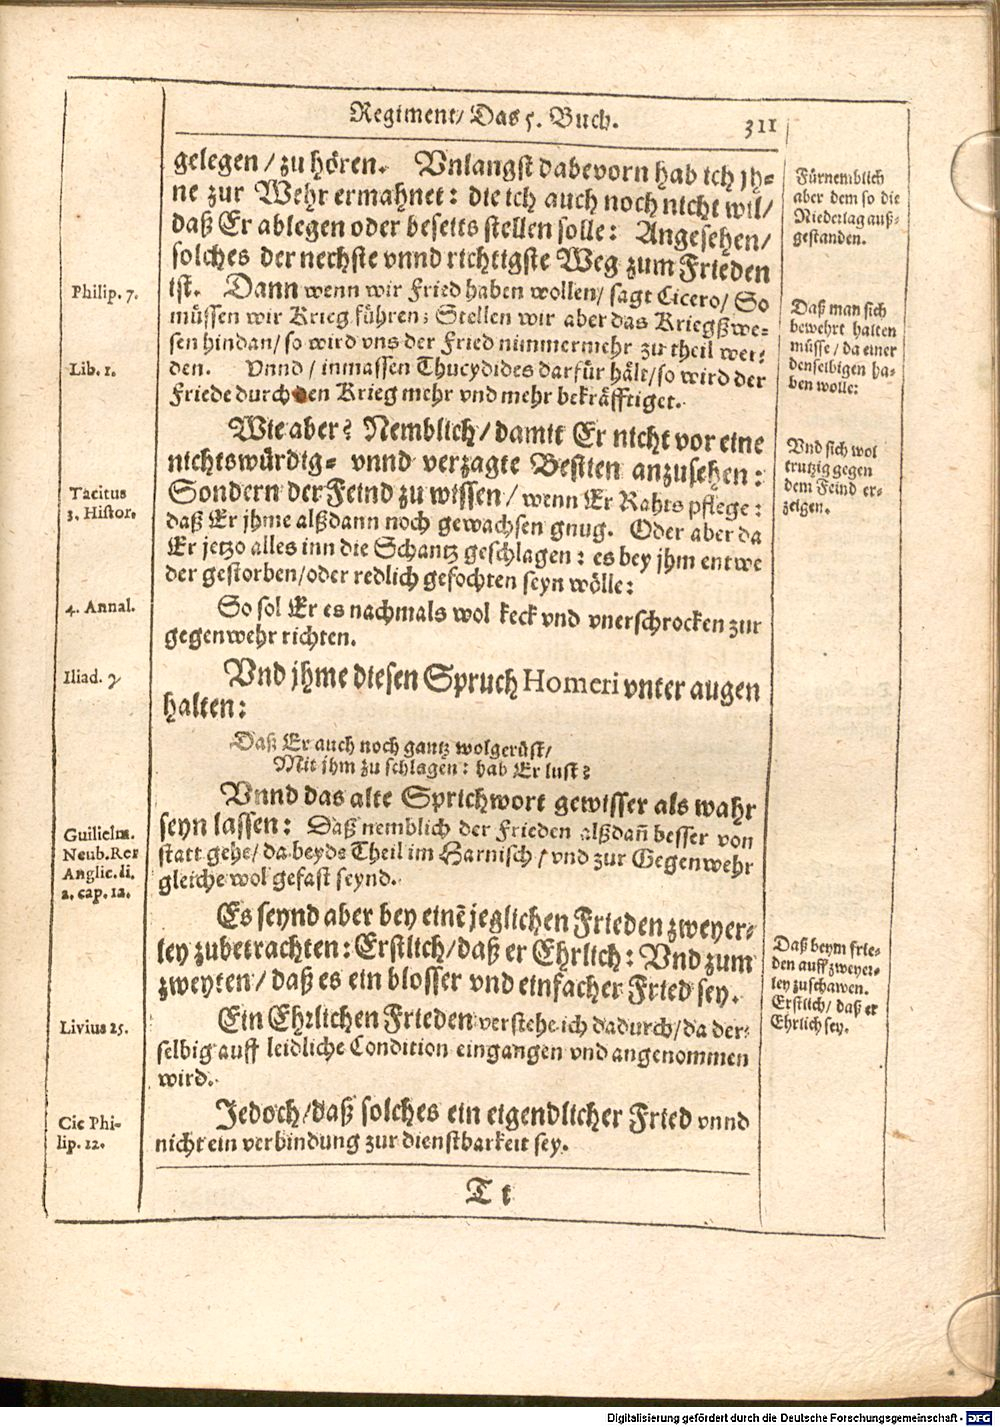 Regiment/ Das 5. Buch. 311
gelegen / zu hören. Vnlangst dabevorn hab ich jh-
ne zur Wehr ermahnet: die ich auch noch nicht wil/
daß Er ablegen oder beseits stellen solle: Angesehen/
solches der nechste vnnd richtigste Weg zum Frieden
ist. Dann wenn wir Fried haben wollen/ sagt Cicero/ So
müssen wir Krieg führen; Stellen wir aber das Kriegßwe-
sen hindan/ so wird vns der Fried nimmermehr zu theil wer-
den. Vnnd / inmassen Thucydides darfür hält/ so wird der
Friede durch den Krieg mehr vnd mehr bekräfftiget.
Wie aber? Nemblich/ damit Er nicht vor eine
nichtswürdig- vnnd verzagte Bestien anzusehen:
Sondern der Feind zu wissen / wenn Er Rahts pflege:
daß Er jhme alßdann noch gewachsen gnug. Oder aber da
Er jetzo alles inn die Schantz geschlagen: es bey jhm entwe
der gestorben/ oder redlich gefochten seyn wölle:
So sol Er es nachmals wol keck vnd vnerschrocken zur
gegenwehr richten.
Vnd jhme diesen Spruch Homeri vnter augen
halten:
Daß Er auch noch gantz wolgerüst/
Mit jhm zu schlagen: hab Er lust?
Vnnd das alte Sprichwort gewisser als wahr
seyn lassen: Daß nemblich der Frieden alßdañ besser von
statt gehe/ da beyde Theil im Harnisch / vnd zur Gegenwehr
gleiche wol gefast seynd.
Es seynd aber bey einẽ jeglichen Frieden zweyer-
ley zubetrachten: Erstlich/ daß er Ehrlich: Vnd zum
zweyten/ daß es ein blosser vnd einfacher Fried sey.
Ein Ehrlichen Frieden verstehe ich dadurch/ da der-
selbig auff leidliche Condition eingangen vnd angenommen
wird.
Jedoch/ daß solches ein eigendlicher Fried vnnd
nicht ein verbindung zur dienstbarkeit sey.
T t
Philip. 7.
Lib. 1.
Tacitus
3. Histor.
4. Annal.
Iliad.
Guilielm.
Neub. Rer
Anglic. li.
2. cap. 12.
Livius 25.
Cic Phi-
lip. 12.
Fürnemblich
aber dem so die
Niederlag auß-
gestanden.
Daß man sich
bewehrt halten
müsse / da einer
denselbigen ha-
ben wolle:
Vnd sich wol
trutzig gegen
dem Feind er-
zeigen.
Daß beym frie-
den auff zweyer-
ley zuschawen.
Erstlich/ daß er
Ehrlich sey.
Digitalisierung gefördert durch die Deutsche Forschungsgemeinschaft - DFG